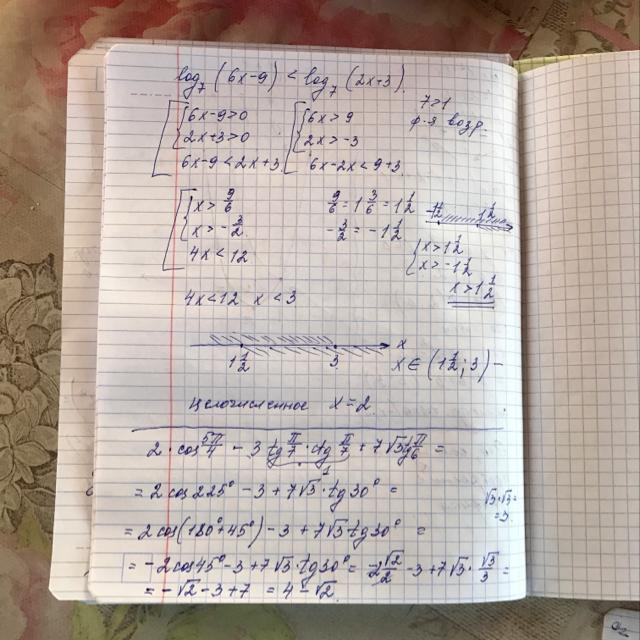 log₇(6x-9) < log₇(2x+3)
6x-9>0 6x>9 7>1
2x+3>0 2x>-3 ф-я возр.
6x-9<2x+3 6x-2x<9+3
x > 9/6 9/6 = 1 3/6 = 1 1/2 1 1/2
x > -3/2 -3/2 = -1 1/2 x > 1 1/2
4x < 12 x > -1 1/2
4x<12 x<3 x > 1 1/2
x
1 1/2 3 x ∈ (1 1/2; 3) –
Целочисленное x=2
2·cos 5π/4 - 3 tg π/7 · ctg π/7 + 7√3 tg π/6 =
1
= 2 cos 225° - 3 + 7√3 · tg 30° = √3·√3=
=3.
= 2cos(180°+45°) - 3 + 7√3·tg30° =
= -2cos45° - 3 + 7√3·tg30° = -2 √2/2 - 3 + 7√3 · √3/3 =
= -√2 - 3 + 7 = 4 - √2.